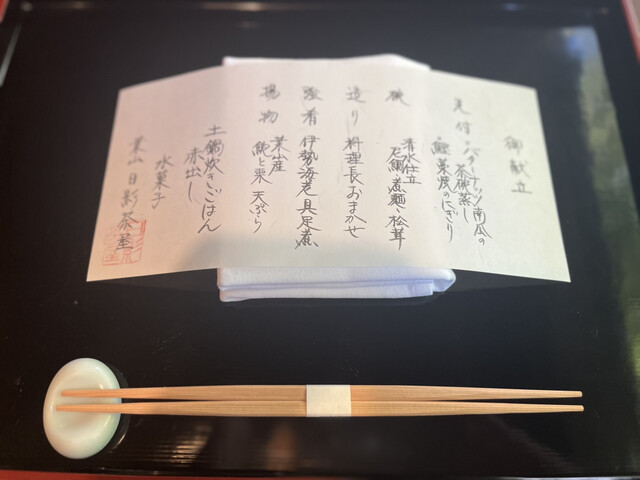 御献立
先付 バターナッツ南瓜の
茶碗蒸し
藁焼のにぎり
椀 清水仕立
石鯛 煮麺 松茸
造り 料理長おまかせ
強肴 伊勢海老具足煮
揚物 葉山産
と栗 天ぷら
土鍋炊きごはん
赤出し
水菓子
葉山 日影茶屋